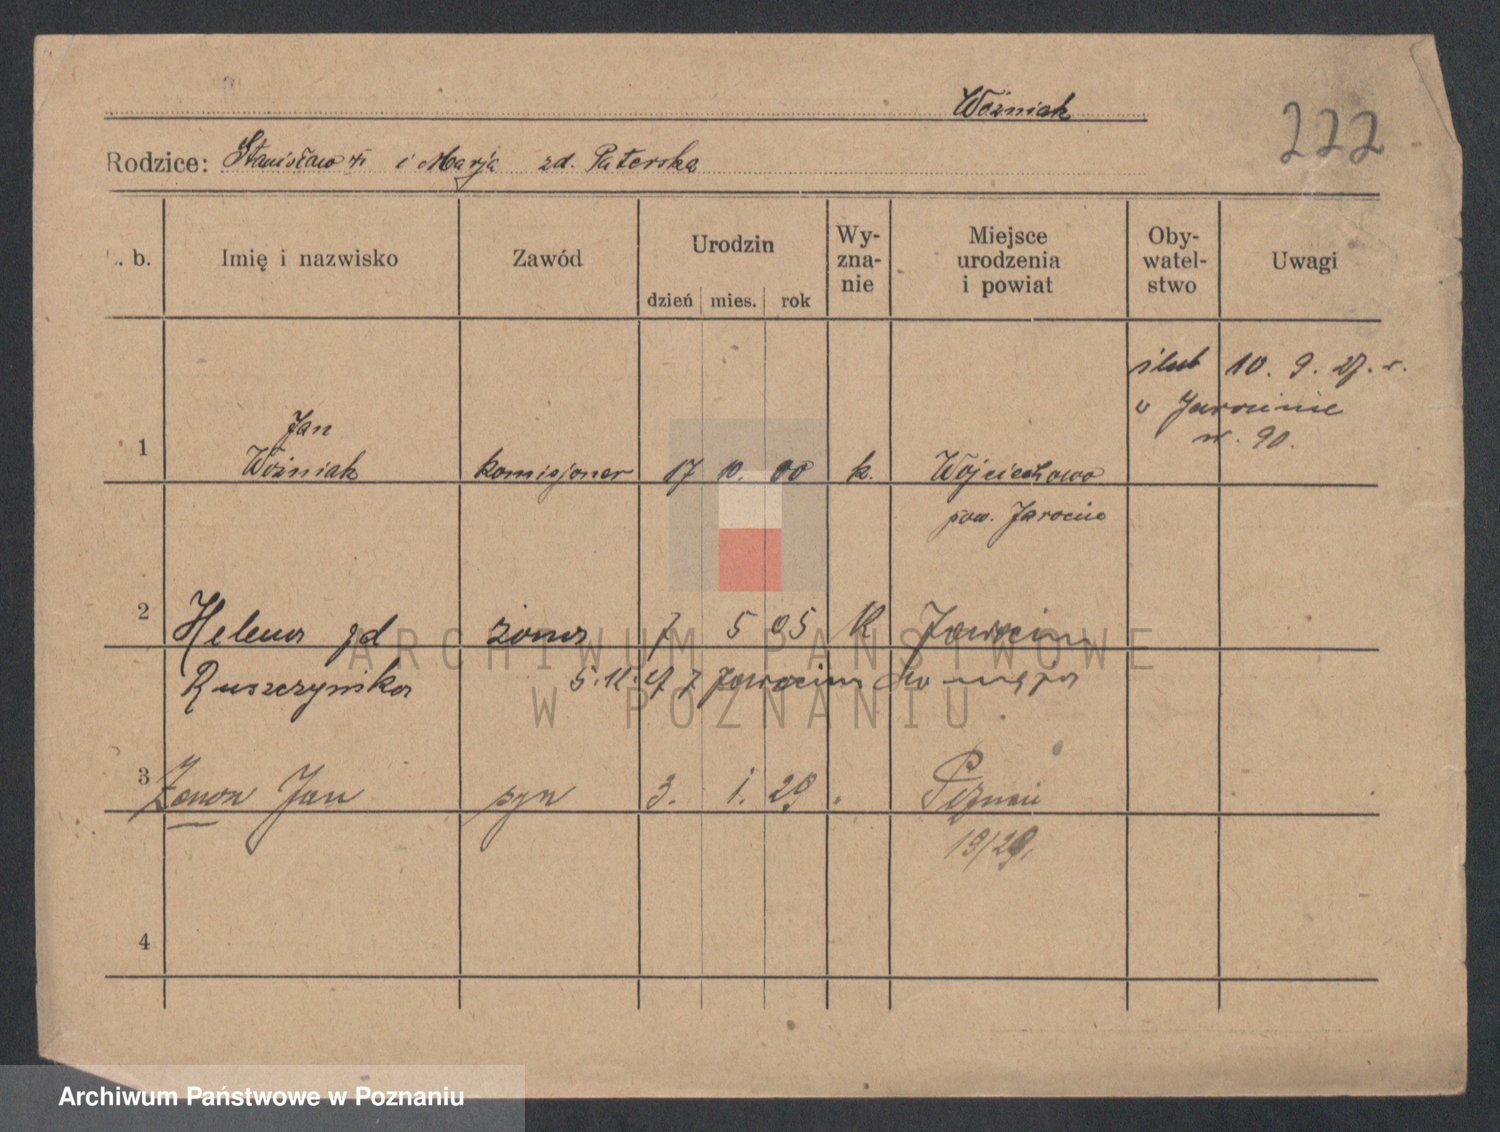 Woźniak
222
Rodzice: Stanisław i Marja zd. Paterska
. b.
Imię i nazwisko
Zawód
Urodzin
dzień mies. rok
Wy-
zna-
nie
Miejsce
urodzenia
i powiat
Oby-
watel-
stwo
Uwagi
ślub 10. 9. 27. r.
w Jarocinie
nr. 90.
1 Jan
Woźniak komisjoner 17 10. 00 k. Wojciechowo
pow. Jarocin
2 Helena zd żona 7 5 05 k Jarocin
Ruszczyńska 5.11.27 z Jarocina do męża
3 Zenon Jan syn 3. 1. 29 Poznań
19/29.
4
ARCHIWUM PAŃSTWOWE
W POZNANIU
Archiwum Państwowe w Poznaniu